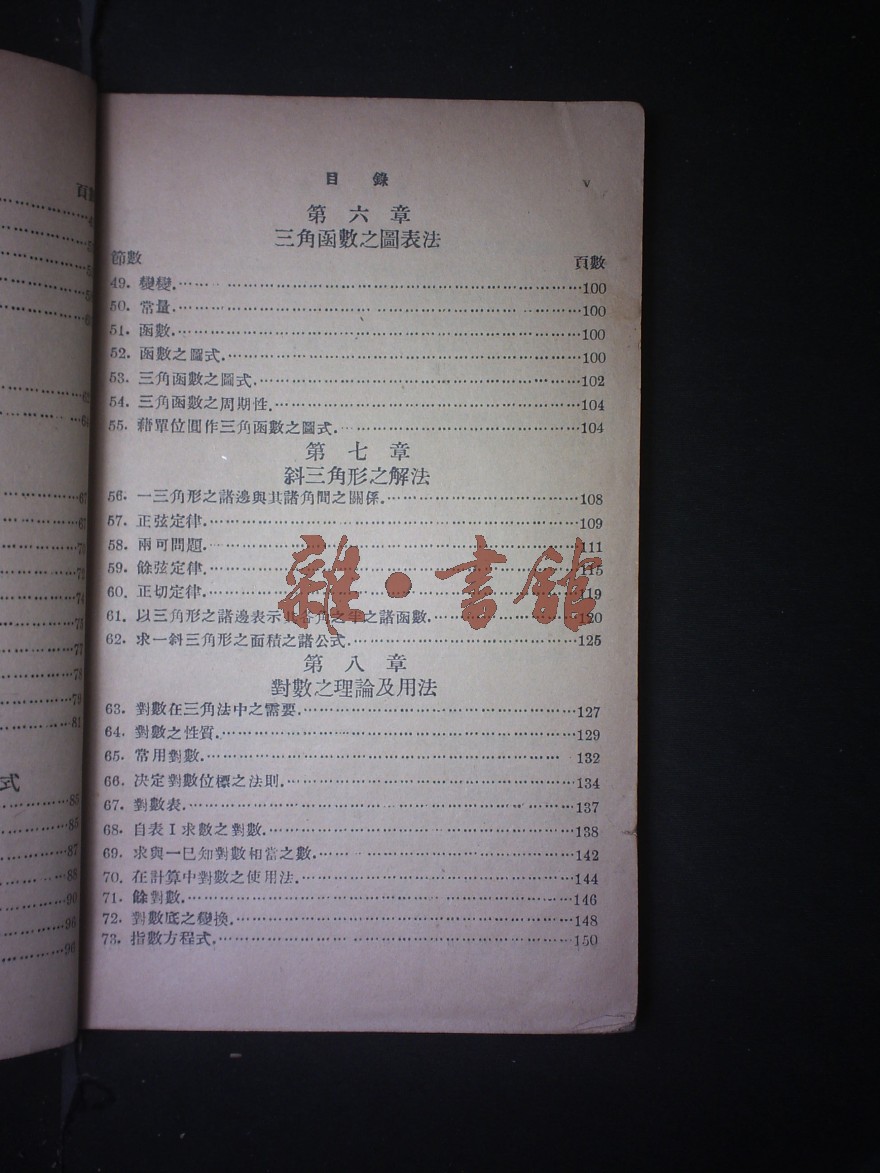 目 錄 v
第 六 章
三角函數之圖表法
節數 頁數
49. 變變.……………100
50. 常量.……………100
51. 函數.……………100
52. 函數之圖式.……………100
53. 三角函數之圖式.……………102
54. 三角函數之周期性.……………104
55. 藉單位圓作三角函數之圖式.……………104
第 七 章
斜三角形之解法
56. 一三角形之諸邊與其諸角間之關係.……………108
57. 正弦定律.……………109
58. 兩可問題.……………111
59. 餘弦定律.……………115
60. 正切定律.……………119
61. 以三角形之諸邊表示其各角之半之諸函數.……………120
62. 求一斜三角形之面積之諸公式.……………125
第 八 章
對數之理論及用法
63. 對數在三角法中之需要.……………127
64. 對數之性質.……………129
65. 常用對數.……………132
66. 决定對數位標之法則.……………134
67. 對數表.……………137
68. 自表 I 求數之對數.……………138
69. 求與一已知對數相當之數.……………142
70. 在計算中對數之使用法.……………144
71. 餘對數.……………146
72. 對數底之變換.……………148
73. 指數方程式.……………150
雜·書館